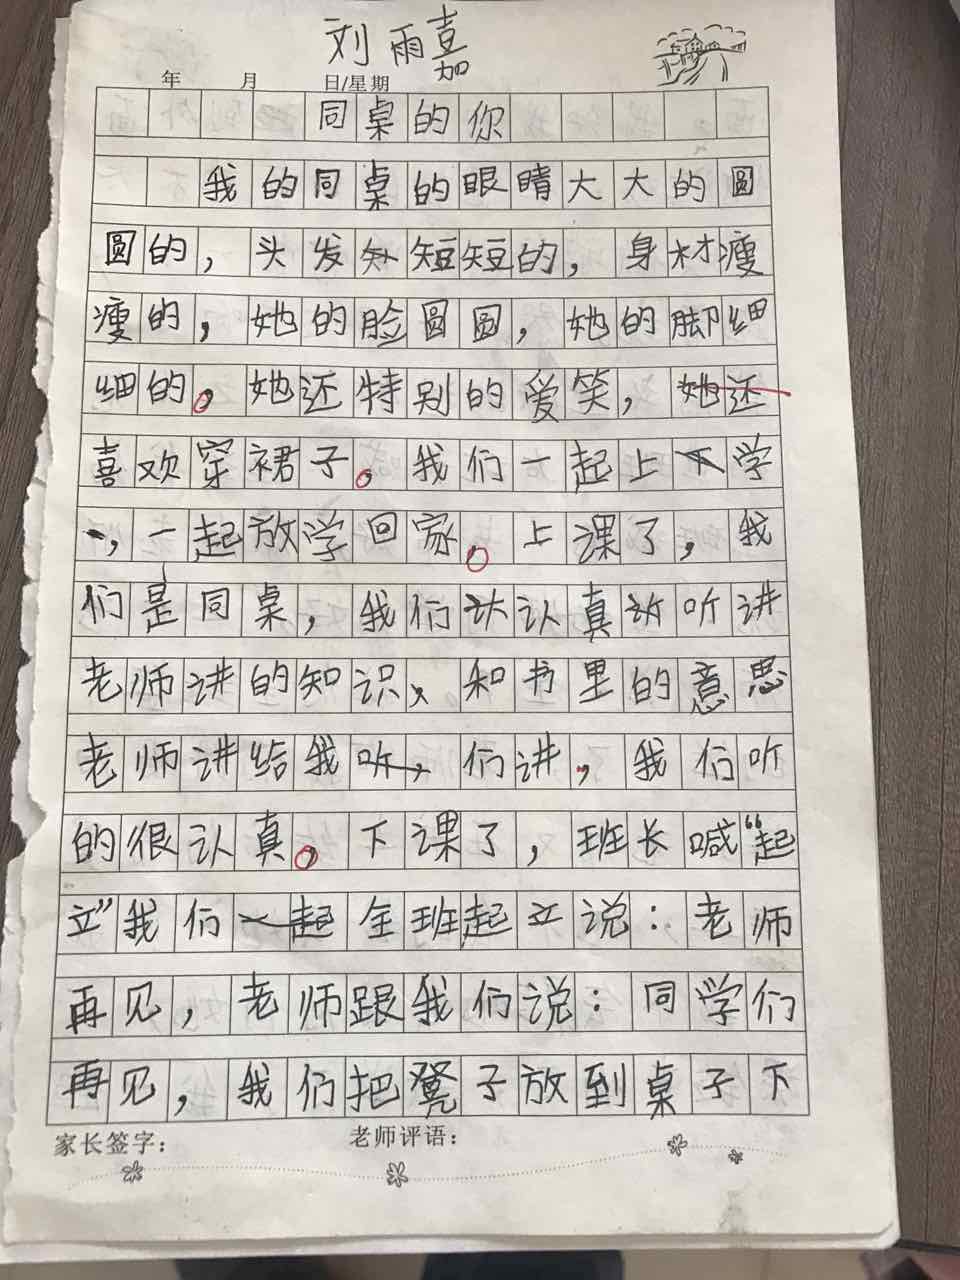 刘雨嘉
年 月 日/星期
同桌的你
我的同桌的眼睛大大的圆
圆的，头发短短的，身材瘦
瘦的，她的脸圆圆，她的脚细
细的。她还特别的爱笑，她还
喜欢穿裙子。我们一起上下学
，一起放学回家。上课了，我
们是同桌，我们认真听讲
老师讲的知识、和书里的意思
老师讲给我们讲，我们听
的很认真。下课了，班长喊“起
立”我们全班起立说：老师
再见，老师跟我们说：同学们
再见，我们把凳子放到桌子下
家长签字： 老师评语：